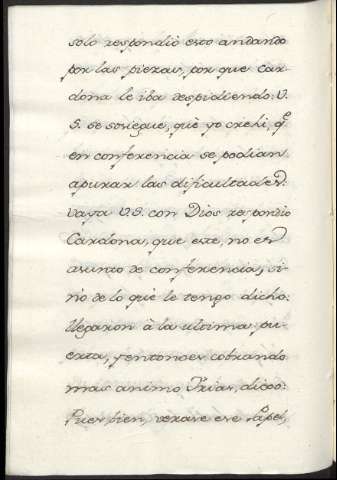 solo respondiò esto andando
por las piezas, por que Car-
dona le iba despidiendo: V.
S. se sosiegue, que yo crehi, q.e
en conferencia se podian
apurar las dificultades.
Vaya V.S. con Dios respondio
Cardona, que este, no es
asunto de conferencia, si-
nó de lo que le tengo dicho:
llegaron à la ultima pu-
erta, y entonces cobrando
mas animo Frias, dijo:
Pues bien, verase ese Papel,